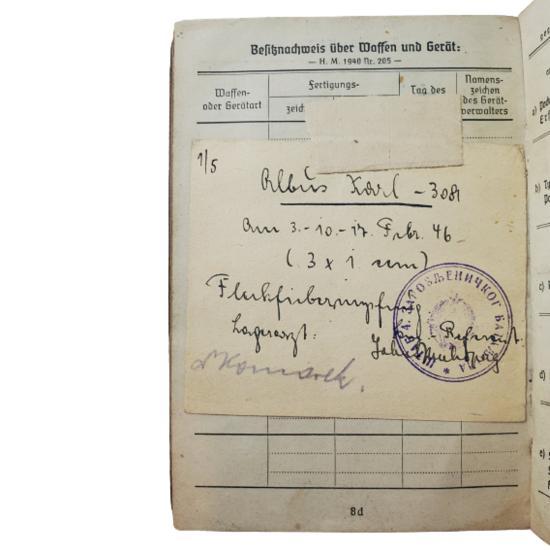 Besitznachweis über Waffen und Gerät:
— H. M. 1940 Nr. 205 —
Waffen- oder Gerätart
Fertigungs-
zeich
Tag des
Namens- zeichen des Gerät- verwalters
1/5
Albus Karl - 3081
am 3.-10.-17. Febr. 46
(3 x 1 ccm)
Fleckfieberimpfung
Lagerarzt:
ЗАРОБЉЕНИЧКОГ
8d
a)
b)
c)
d)
e)